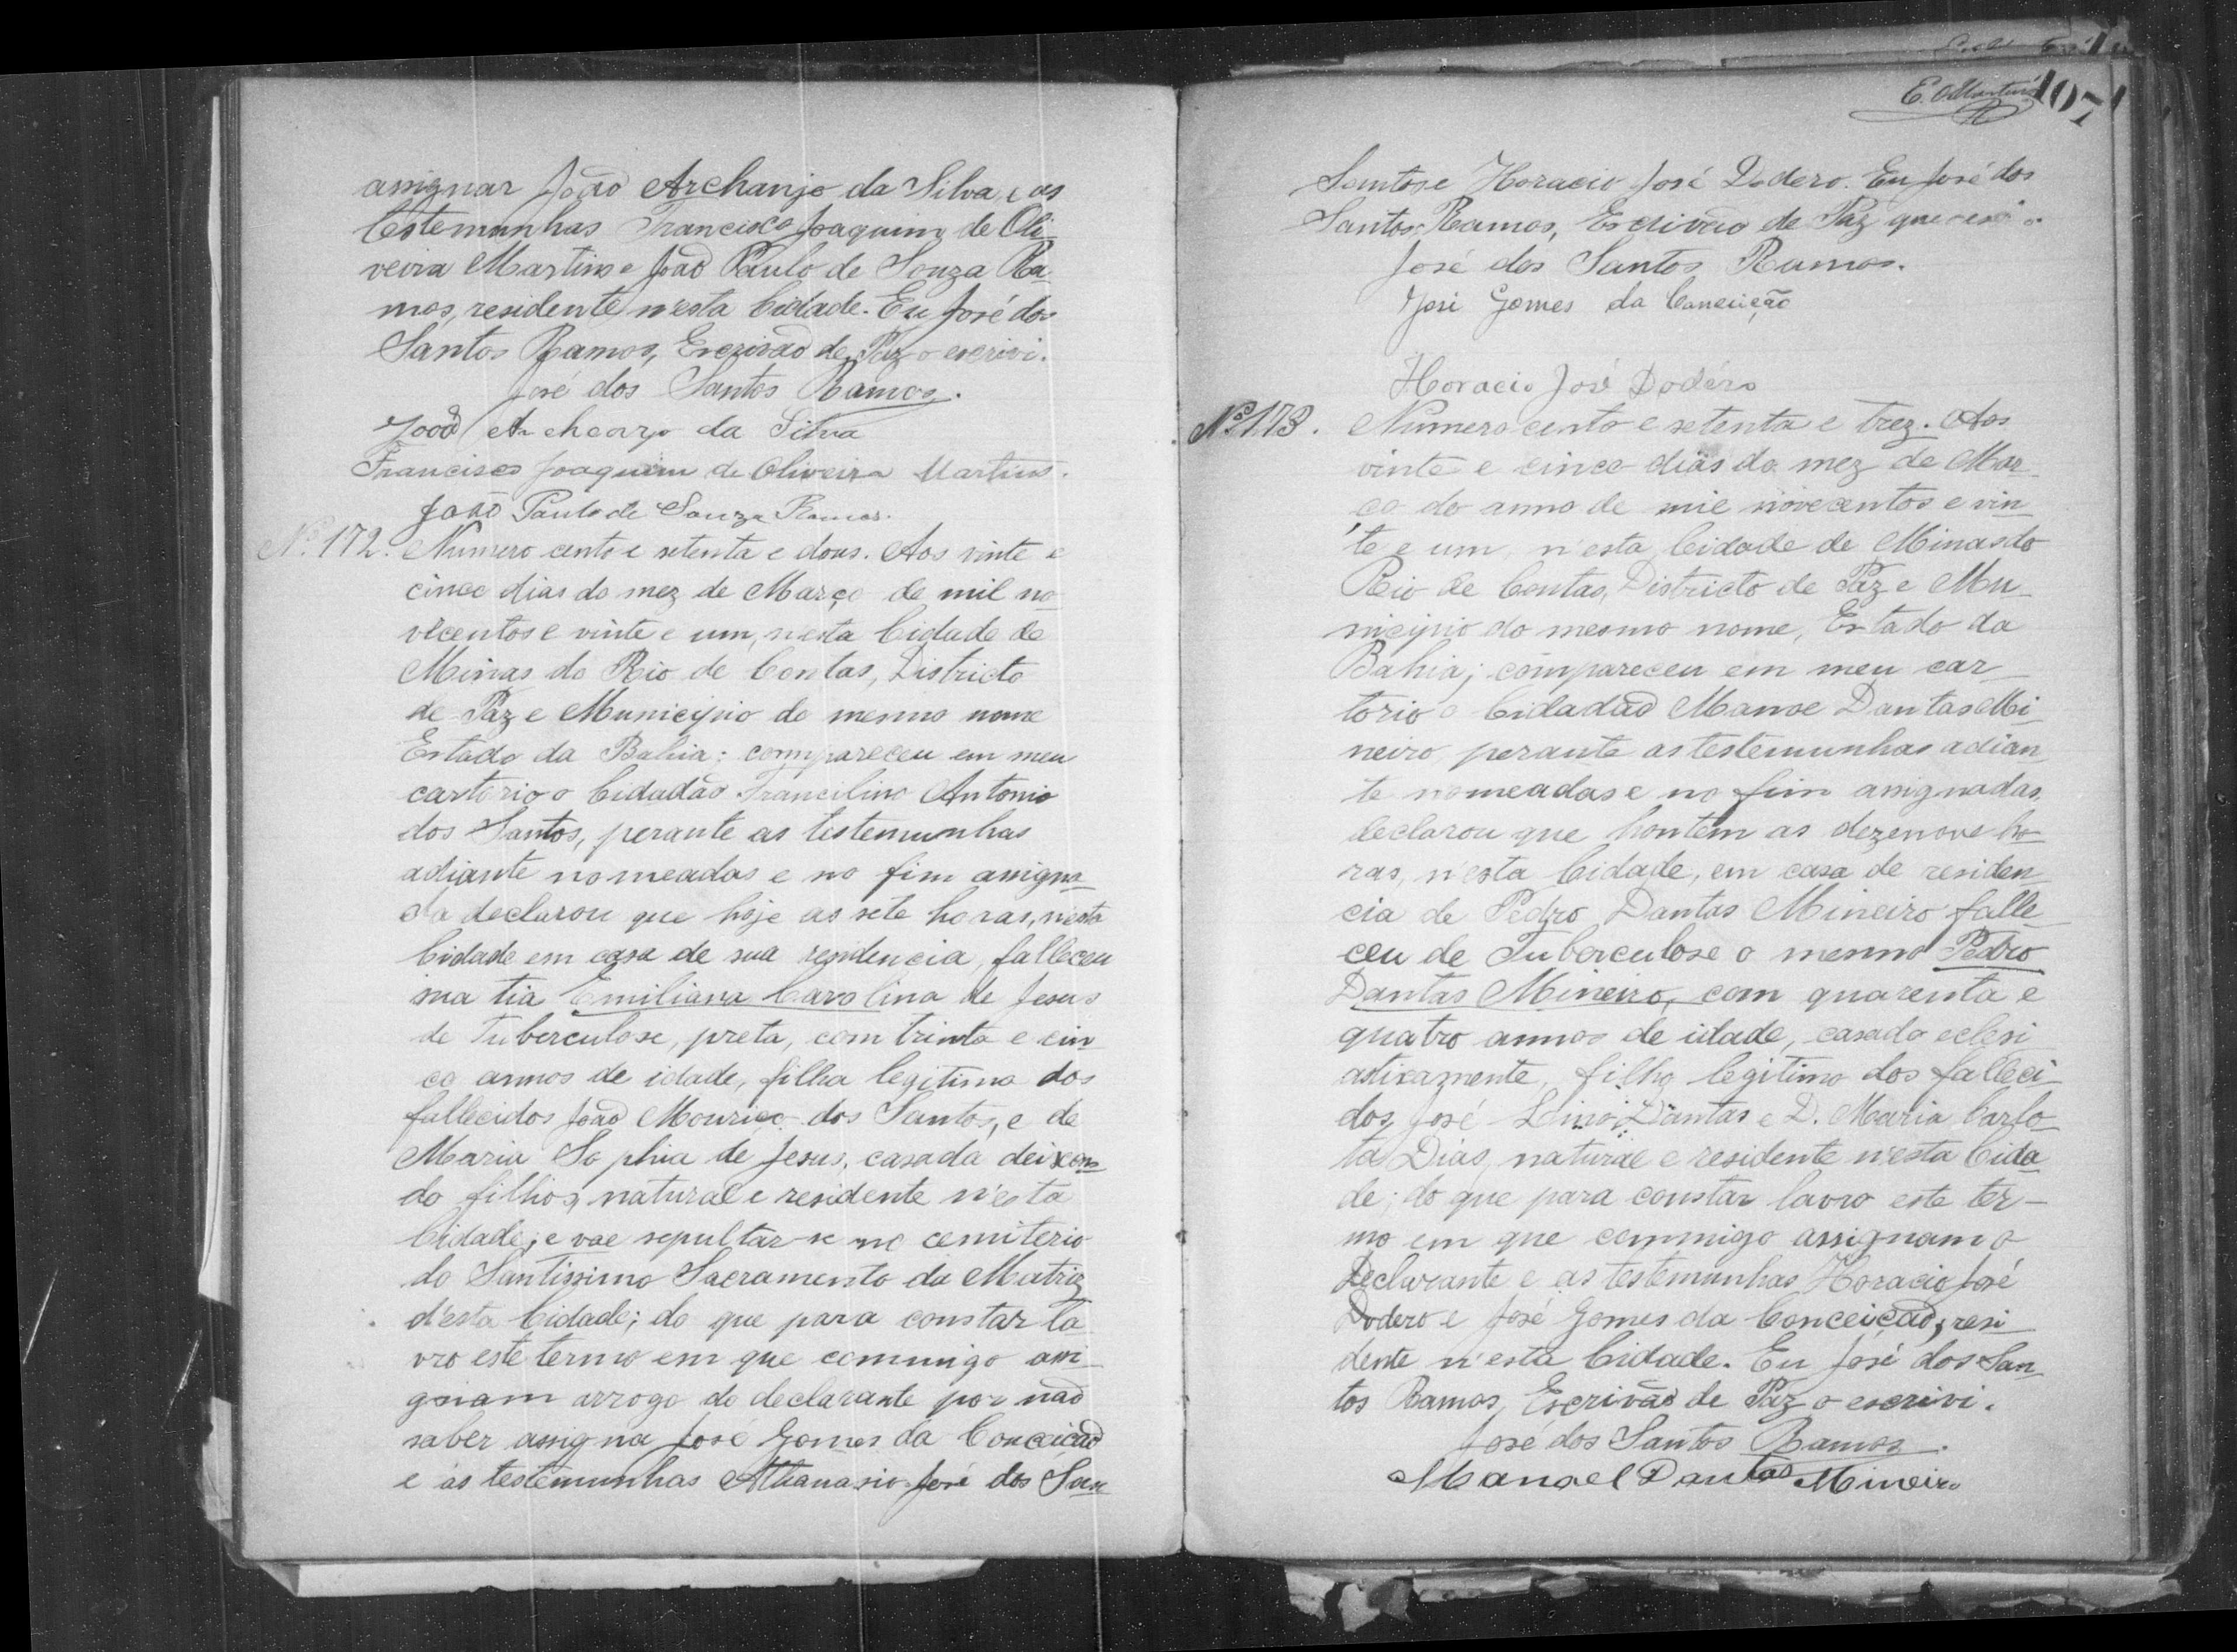 assignar João Archanjo da Silva, e as
testemunhas Francisco Joaquim de Oli-
veira Martins e João Paulo de Souza Ra-
mos, residente n'esta Cidade. Eu José dos
Santos Ramos, Escrivão de Paz o escrivi.
José dos Santos Ramos.
João Archearjo da Silva
Francisco Joaquim de Oliveira Martins.
João Paulo de Souza Ramos.
Nº 172. Numero cento e setenta e dous. Aos vinte e
cinco dias do mez de Março de mil no-
vecentos e vinte e um, n'esta Cidade de
Minas do Rio de Contas, Districto
de Paz e Municipio do mesmo nome
Estado da Bahia; compareceu em meu
cartorio o Cidadão Francilino Antonio
dos Santos, perante as testemunhas
adiante nomeadas e no fim assigna-
da declarou que hoje as sete horas, n'esta
Cidade em casa de sua residencia, falleceu
sua tia Emiliana Carolina de Jesus
de Tuberculose, preta, com trinta e cin-
co annos de idade, filha legitima dos
fallecidos João Mouriço dos Santos, e de
Maria Sophia de Jesus, casada deixan-
do filhos, natural e residente n'esta
Cidade; e vae sepultar-se no cemiterio
do Santissimo Sacramento da Matriz
d'esta Cidade; do que para constar la-
vro este termo em que commigo assi-
gnam arrogo do declarante por não
saber assigna José Gomes da Conceição
e as testemunhas Athanasio José dos San-
E. O Martins 107
Santos e Horacio José Dodero. Eu José dos
Santos Ramos, Escrivão de Paz que
José dos Santos Ramos.
José Gomes da Conceição
Horacio José Dodéro
Nº 173. Numero cento e setenta e trez. Aos
vinte e cinco dias do mez de Mar-
ço do anno de mil novecentos e vin-
te e um, n'esta Cidade de Minas do
Rio de Contas, Districto de Paz e Mu-
nicipio do mesmo nome, Estado da
Bahia; compareceu em meu car-
torio o Cidadão Manoe Dantas Mi-
neiro perante as testemunhas adian-
te nomeadas e no fim assignadas,
declarou que hontem as dezenove ho-
ras, n'esta Cidade, em casa de residen-
cia de Pedro Dantas Mineiro falle-
ceu de Tuberculose o mesmo Pedro
Dantas Mineiro, com quarenta e
quatro annos de idade, casado eclesi-
asticamente, filho legitimo dos falleci-
dos José Lino Dantas e D. Maria Carlo-
ta Dias, natural e residente n'esta Cida-
de; do que para constar lavro este ter-
mo em que commigo assignam o
Declarante e as testemunhas Horacio José
Dodero e José Gomes da Conceição, resi-
dente n'esta Cidade. Eu José dos San-
tos Ramos, Escrivão de Paz o escrivi.
José dos Santos Ramos.
Manoel Dantas Mineiro